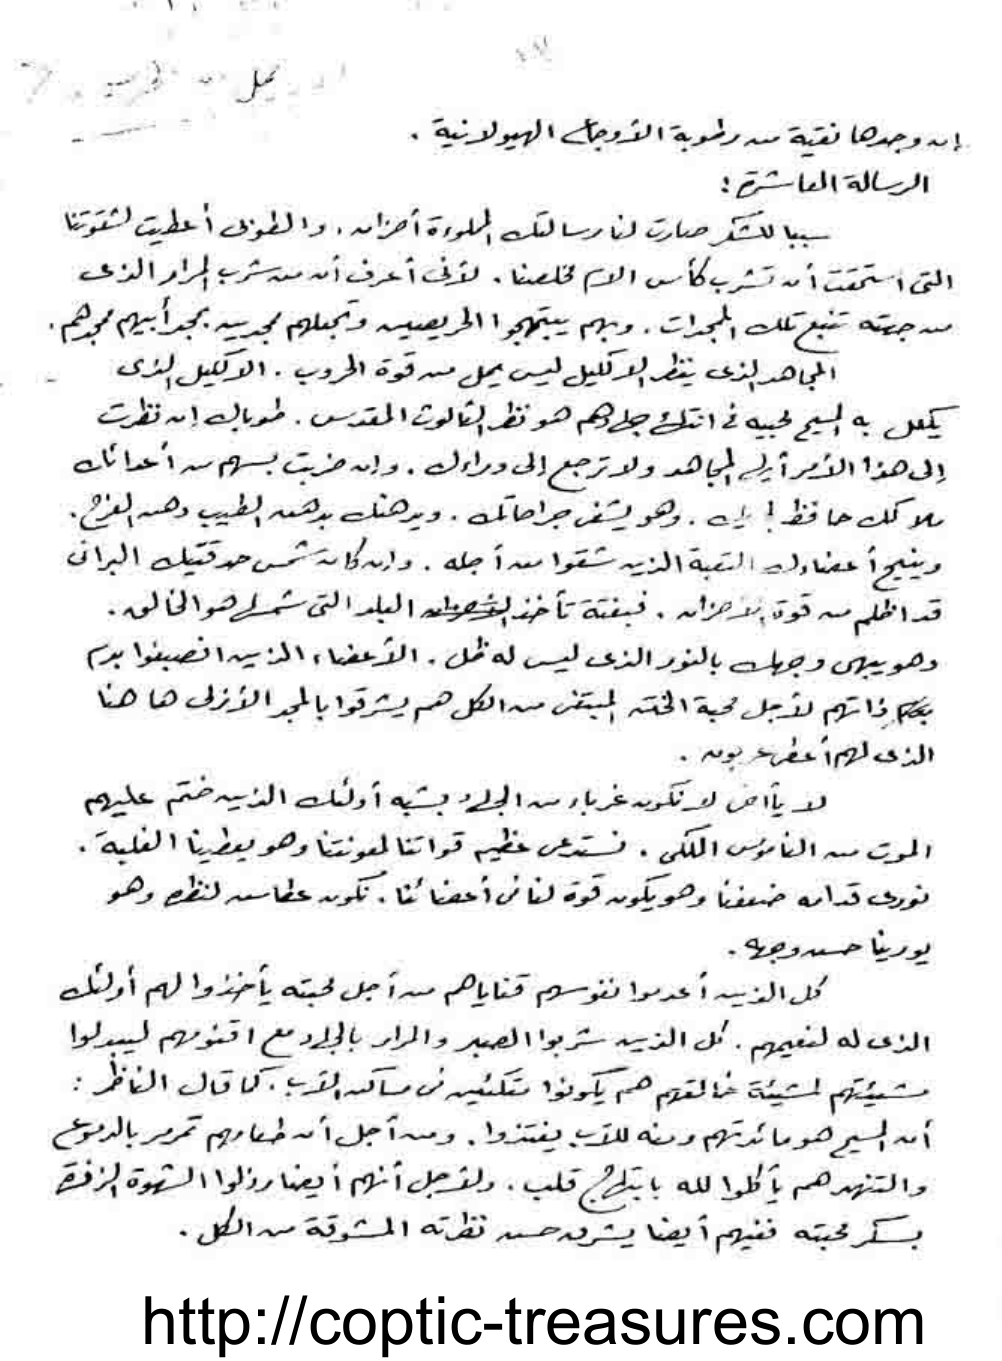 إن وجدها نقية من رطوبة الأوجاع الهيولانية .
الرسالة العاشرة :
سببا للشكر صارت لنا رسالتك المملوءة أحزان . والطوبى أعطيت لشقوتنا
التى استحقت أن تشرب كأس الام مخلصنا . لأنى أعرف أن من شرب المرار الذى
من جهته تنبع تلك المجدات . وبهم يبتهجوا الحريصين وتجعلهم مجدين بمجد أبيهم مجدهم .
المجاهد الذى ينظر الاكليل ليس يمل من قوة الحروب . الاكليل الذى
يكلل به المسيح محبيه فى انتهاء جهادهم هو نظر الثالوث المقدس . طوباك إن نظرت
إلى هذا الأمر أيها المجاهد ولا ترجع إلى وراءك . وإن ضربت بسهم من أعدائك
ملاكك حافظ . وهو يشفى جراحاتك . ويدهنك بدهن الطيب دهن الفرح .
وينيح أعضاءك التعبة الذين شقوا من أجله . وإن كانت شمس حدقتيك البرانى
قد اظلم من قوة الأحزان . فبغتة تأخذ البلد التى شمسها هو الخالق .
وهو يبهى وجهك بالنور الذى ليس له ظل . الأعضاء الذين انصبغوا بدم
ذاتهم لأجل محبة الختن المبتغى من الكل هم يشرقوا بالمجد الأزلى ها هنا
الذى لهم أعطى عربون .
لا يا أخى لا نكون غرباء من الجهاد بشبه أولئك الذين ختم عليهم
الموت من الناموس الملكى . نستدعى عظيم قواتنا لمعونتنا وهو يعطينا الغلبة .
نورى قدامه ضعفنا وهو يكون قوة لنا فى أعضائنا . نكون عطاس لنظره وهو
يورينا حسن وجهه .
كل الذين أعدموا نفوسهم قناياهم من أجل محبته يأخذوا لهم أولئك
الذى له لنعيمهم . كل الذين شربوا الصبر والمرار بالجهاد مع اقنومهم ليبدلوا
مشيئتهم لمشيئة خالقهم هم يكونوا متكئين فى مساكن الآب . كما قال الناظر :
أن المسيح هو مائدتهم ومنه للآب يغتذوا . ومن أجل أن طعامهم تمرمر بالدموع
والتنهد هم يأكلوا لله بابتهاج قلب . ولأجل أنهم أيضا رذلوا الشهوة الزفرة
بسكر محبته ففيهم أيضا يشرق حسن نظرته المشوقة من الكل .
http://coptic-treasures.com